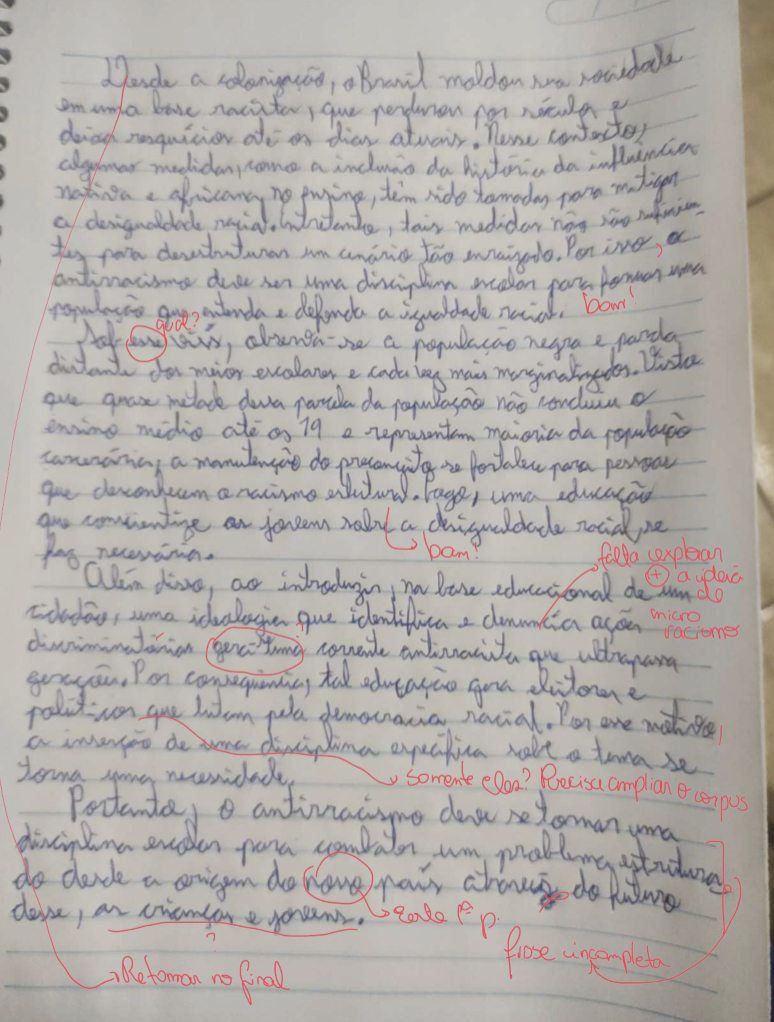 Desde a colonização, o Brasil moldou sua sociedade
em uma base racista, que perdurou por séculos e
deixa resquícios até os dias atuais. Nesse contexto,
algumas medidas, como a inclusão da história da influência
nativa e africana, no ensino, têm sido tomadas para mitigar
a desigualdade racial. Entretanto, tais medidas não são suficien-
tes para desestruturar um cenário tão enraizado. Por isso, o
antirracismo deve ser uma disciplina escolar para formar uma
população que entenda e defenda a igualdade racial. bom!
qual?
Sob esse viés, observa-se a população negra e parda
distante dos meios escolares e cada vez mais marginalizados. Visto
que quase metade dessa parcela da população não concluiu o
ensino médio até os 19 e representam maioria da população
carcerária, a manutenção do preconceito se fortalece para pessoas
que desconhecem o racismo estrutural. Logo, uma educação
que conscientize os jovens sobre a desigualdade racial se
faz necessária.
bom!
falta explorar
+ a ideia
de
micro
racismos
Além disso, ao introduzir, na base educacional de um
cidadão, uma ideologia que identifica e denuncia ações
discriminatórias gera uma corrente antirracista que ultrapassa
gerações. Por consequência, tal educação gera eleitores e
políticos que lutam pela democracia racial. Por esse motivo,
a inserção de uma disciplina específica sobre o tema se
torna uma necessidade.
somente eles? Precisa ampliar o corpus
Portanto, o antirracismo deve se tornar uma
disciplina escolar para combater um problema estrutura
do desde a origem do nosso país através do futuro
desse, as crianças e jovens.
?
evite 1ª p.
frase incompleta
Retomar no final